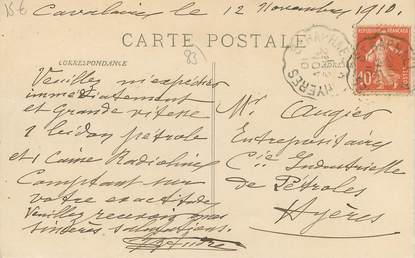 15€
Cavalaire le 12 Novembre 1910.
CARTE POSTALE
CORRESPONDANCE
83
Veuillez m'expédier
immédiatement
et Grande vitesse
1 bidon pétrole
et 1 Caisse Radioline
Comptant sur
votre exactitude
Veuillez recevoir mes
sincères salutations.
HYERES
10
POSTES
Mr Augier
Entrepositaire
Cie Industrielle
de Pétroles
Hyères